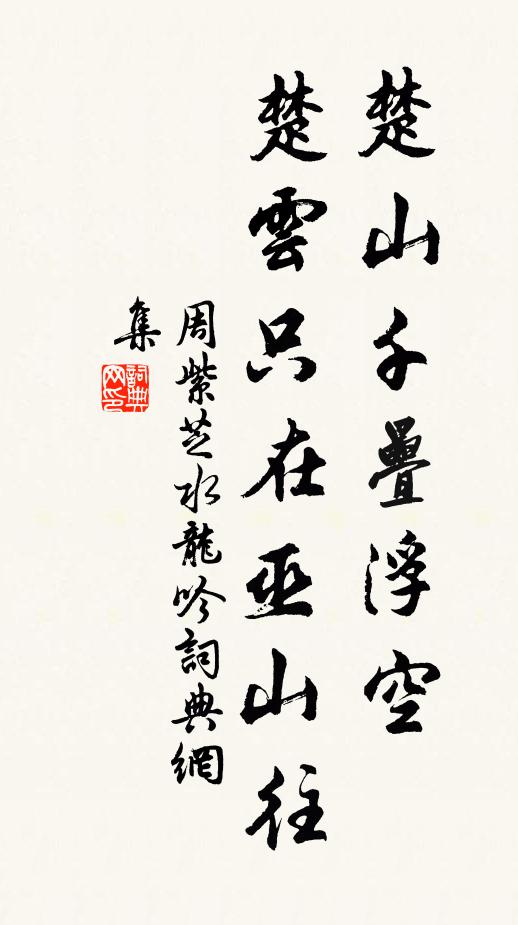 楚山千疊浮空
楚雲只在巫山往
周紫芝水龍吟詞典網
集
詞典網印